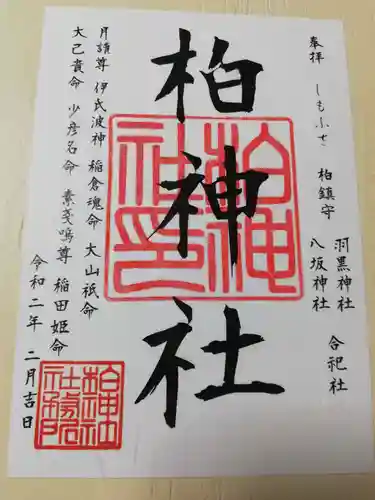 奉拝 しもふさ 柏鎮守 羽黒神社
八坂神社 合祀社
柏神社
柏神社印
月讀尊 伊氐波神 稲倉魂命 大山祇命
大己貴命 少彦名命 素戔嗚尊 稲田姫命
令和二年 二月吉日
柏神社
社務所印